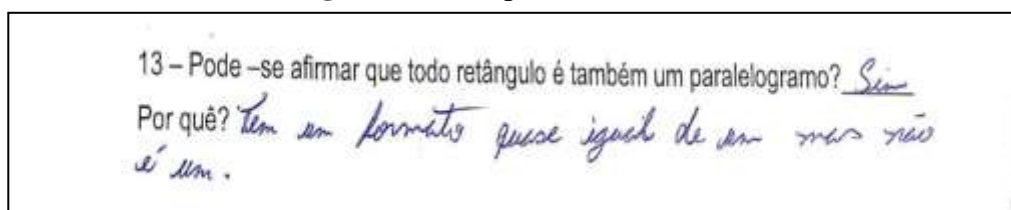 13 – Pode –se afirmar que todo retângulo é também um paralelogramo? Sim
Por quê? Tem um formato quase igual de um mas não
é um.